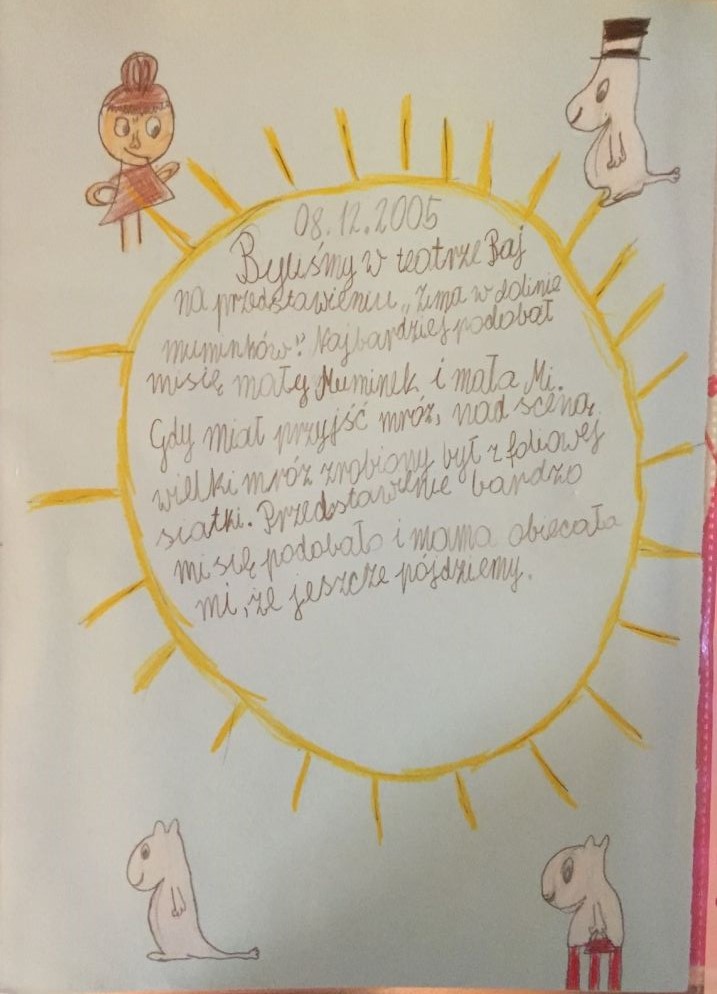 08.12.2005
Byliśmy w teatrze Baj
na przedstawieniu „Zima w dolinie
muminków". Najbardziej podobał
mi się mały Muminek i mała Mi.
Gdy miał przyjść mróz, nad sceną
wielki mróz zrobiony był z foliowej
siatki. Przedstawienie bardzo
mi się podobało i mama obiecała
mi, że jeszcze pójdziemy.